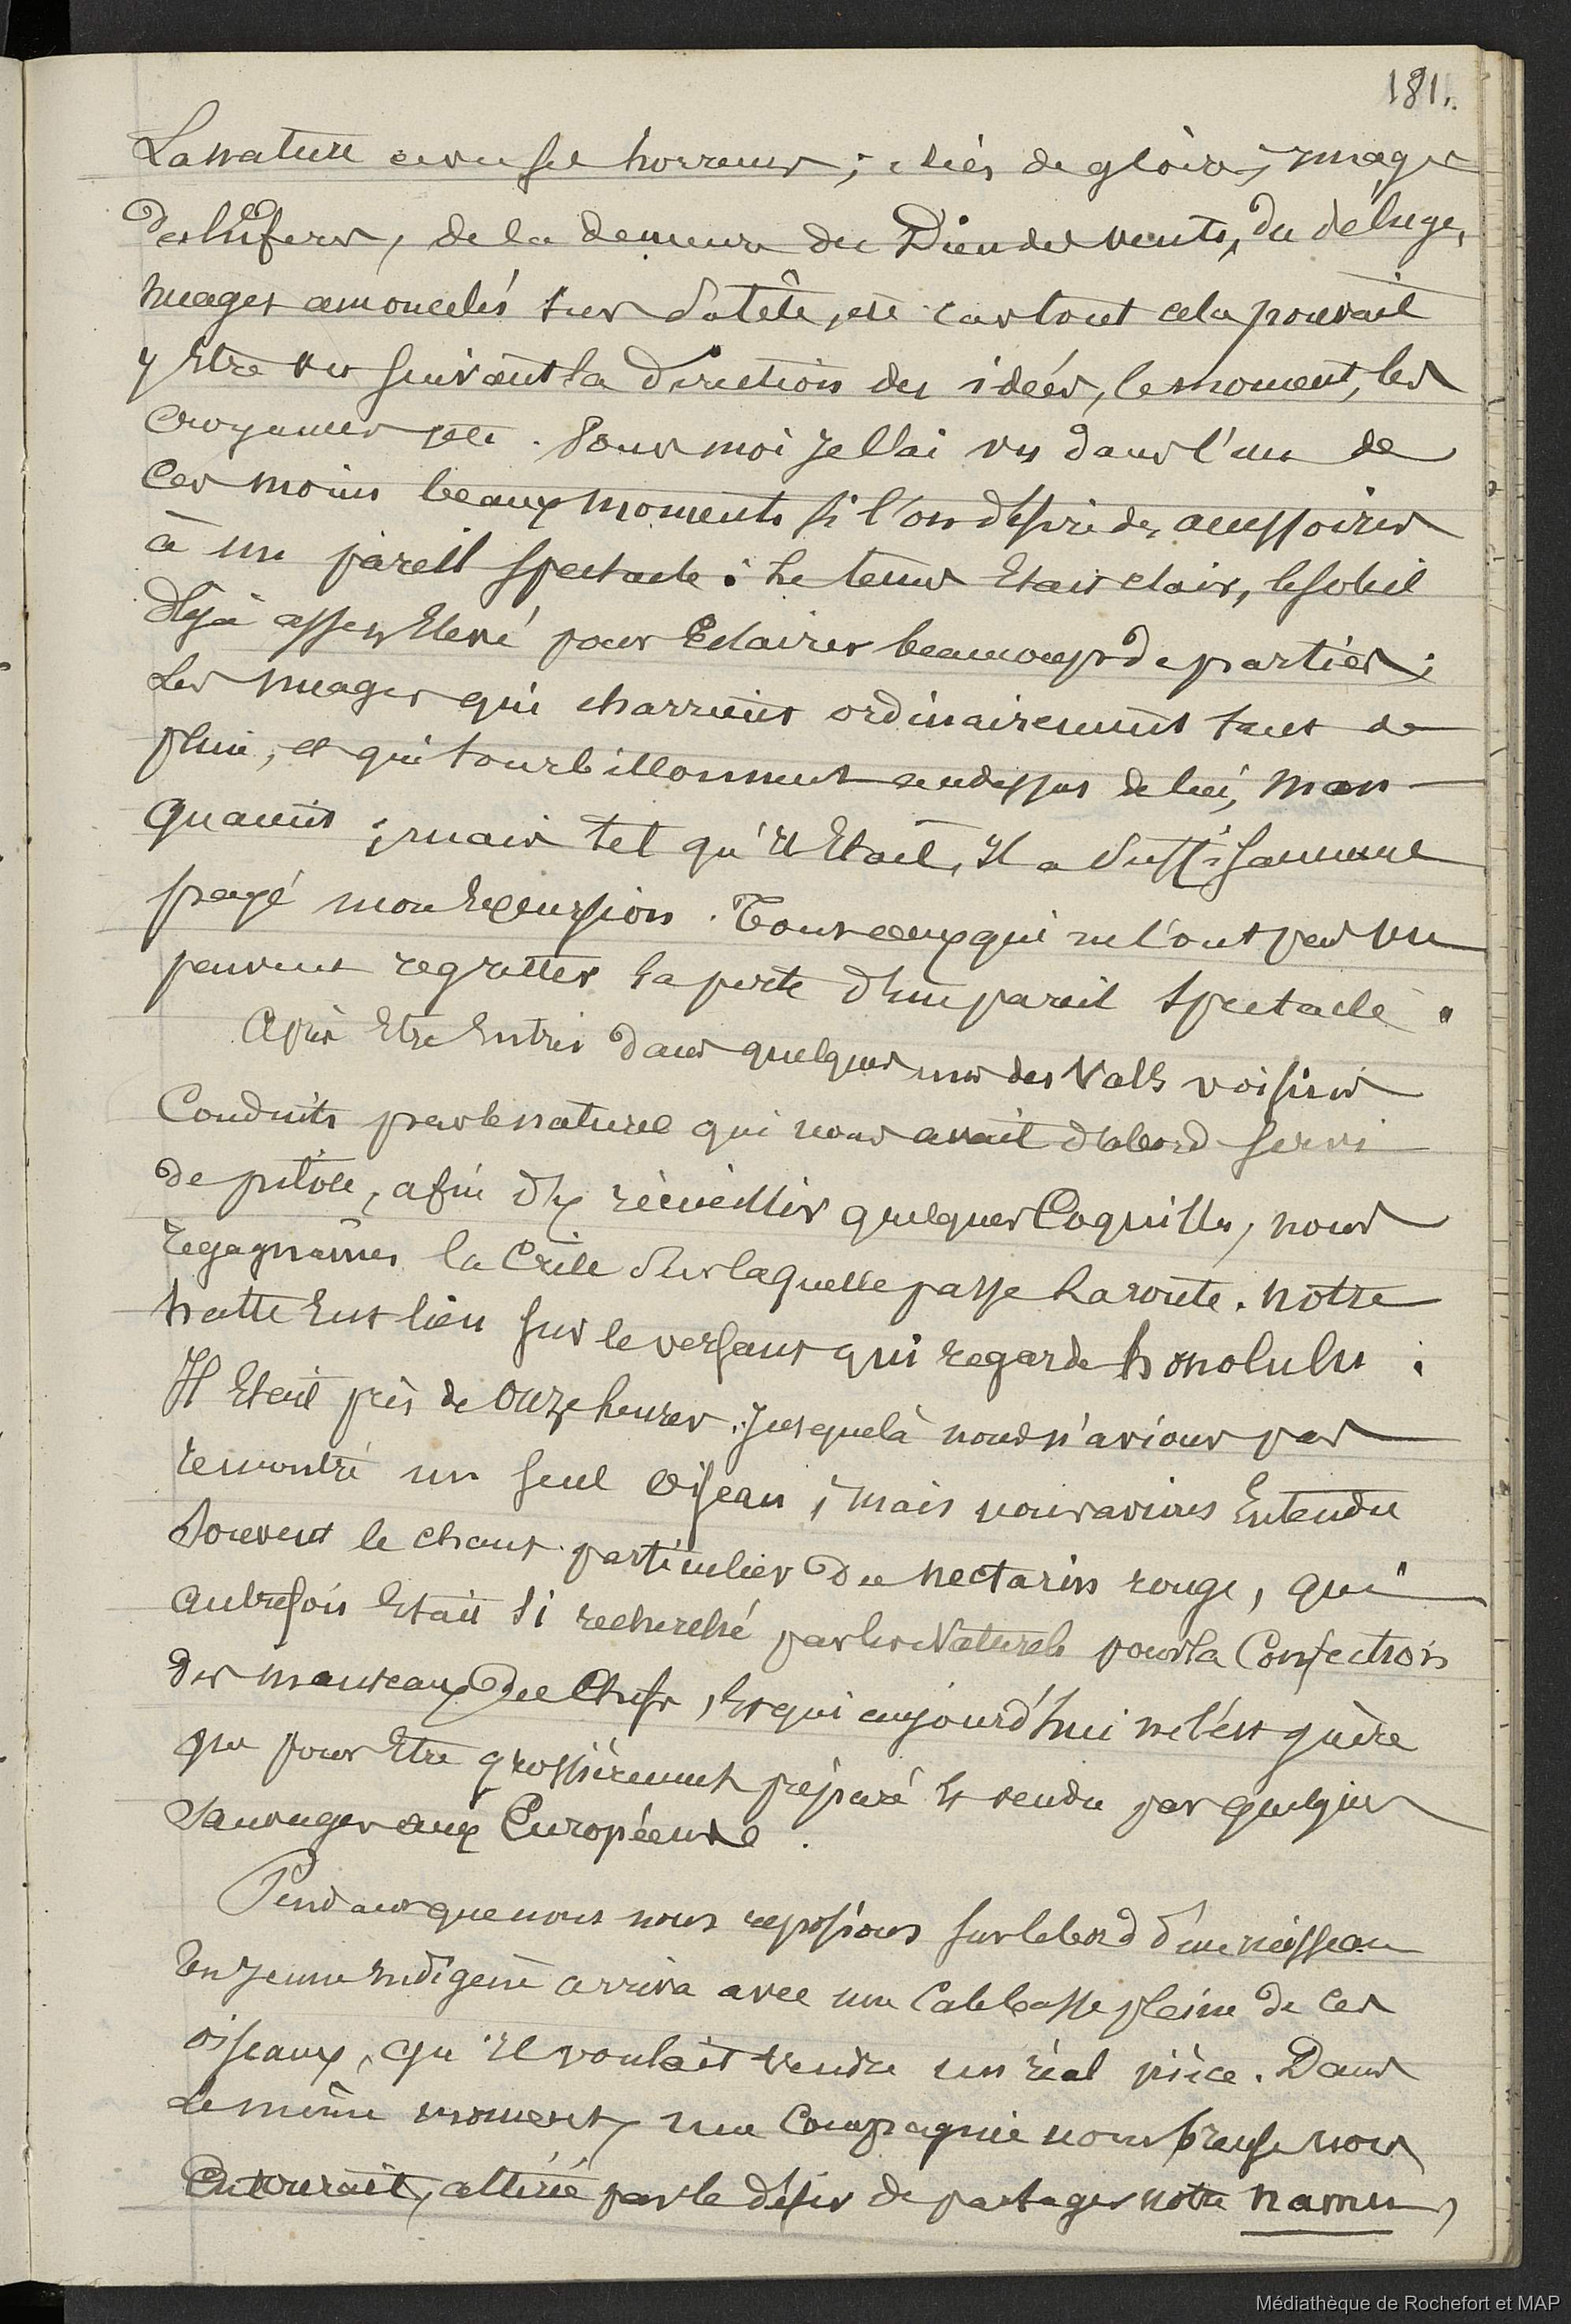 181.
La nature avec ses horreurs; idées de gloire, image
des Enfers, de la demeure du Dieu des vents, du déluge,
nuages amoncelés sur sa tête, etc car tout cela pouvait
y Etre vu suivant la direction des idées, le moment, les
croyances etc. Pour moi je l'ai vu dans l'un de
ces moins beaux moments si l'on désire des accessoires
à un pareil spectacle : Le tems Etait clair, le soleil
déjà assez Elevé pour Eclairer beaucoup de parties;
Les nuages qui charrient ordinairement tant de
pluie, et qui tourbillonnent audessus de lui, man-
quaient ; mais tel qu'il Etait, Il a suffisamment
payé mon Excursion. Tous ceux qui ne l'ont pas vu
peuvent regretter la perte d'un pareil spectacle.
Après Etre Entrés dans quelques uns des Valls voisins
Conduits par le naturel qui nous avait d'abord servi
de pilote, afin d'y récueillir quelques Coquilles, nous
regagnâmes la Crête sur laquelle passe la route. Notre
halte Eut lieu sur le versant qui regarde honolulu :
Il Etait près de Onze heures. Jusque là nous n'avions pas
rencontré un seul Oiseau ; mais nous avions Entendu
Souvent le chant particulier du nectarin rouge, qui
autrefois Etait si recherché par les Naturels pour la Confection
des manteaux de Chefs, Et qui aujourd'hui ne l'est guère
que pour Etre grossièrement préparé Et vendu par quelques
Sauvages aux Européens.
Pendant que nous nous reposions sur le bord d'un ruisseau
Un Jeune Indigène arriva avec une Calebasse pleine de ces
oiseaux, qu'il voulait vendre un réal pièce. Dans
Le même moment, une Compagnie nombreuse nous
Entourait, attirée par le désir de partager notre namu,
Médiathèque de Rochefort et MAP